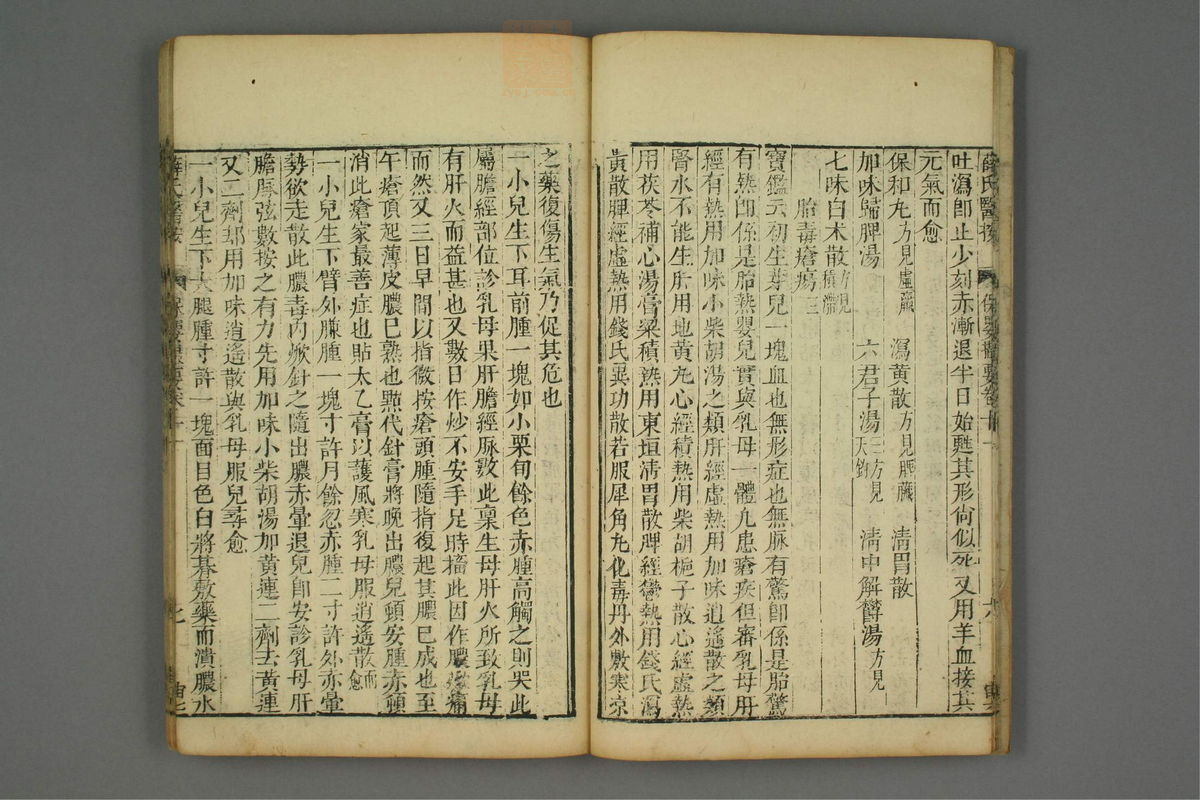 薛氏醫按 保嬰撮要卷十一 六
吐瀉卽止少刻赤漸退半日始甦其形尙似死又用羊血接其
元氣而愈
保和丸方見虛羸 瀉黃散方見脾臟 清胃散
加味歸脾湯 六君子湯二方見天釣 清中解鬱湯方見
七味白朮散方見積滯
胎毒瘡瘍三
寶鑑云初生芽兒一塊血也無形症也無脉有驚卽係是胎驚
有熱卽係是胎熱嬰兒實與乳母一體凡患瘡疾但審乳母肝
經有熱用加味小柴胡湯之類肝經虛熱用加味逍遙散之類
腎水不能生肝用地黃丸心經積熱用柴胡梔子散心經虛熱
用茯苓補心湯膏粱積熱用東垣清胃散脾經鬱熱用錢氏瀉
黃散脾經虛熱用錢氏異功散若服犀角丸化毒丹外敷寒凉
之藥復傷生氣乃促其危也
一小兒生下耳前腫一塊如小栗旬餘色赤腫高觸之則哭此
屬膽經部位診乳母果肝膽經脉數此稟生母肝火所致乳母
有肝火而益甚也又數日作炒不安手足時搐此因作膿痛
而然又三日早間以指微按瘡頭腫隨指復起其膿已成也至
午瘡頂起薄皮膿已熟也點代針膏將晚出膿兒頓安腫赤頓
消此瘡家最善症也貼太乙膏以護風寒乳母服逍遙散而愈
一小兒生下臂外臁腫一塊寸許月餘忽赤腫二寸許外赤暈
勢欲走散此膿毒內焮針之隨出膿赤暈退兒卽安診乳母肝
膽脉弦數按之有力先用加味小柴胡湯加黃連二劑去黃連
又二劑却用加味逍遙散與乳母服兒尋愈
一小兒生下大腿腫寸許一塊面目色白將朞敷藥而潰膿水
薛氏醫按 保嬰撮要卷十一 七